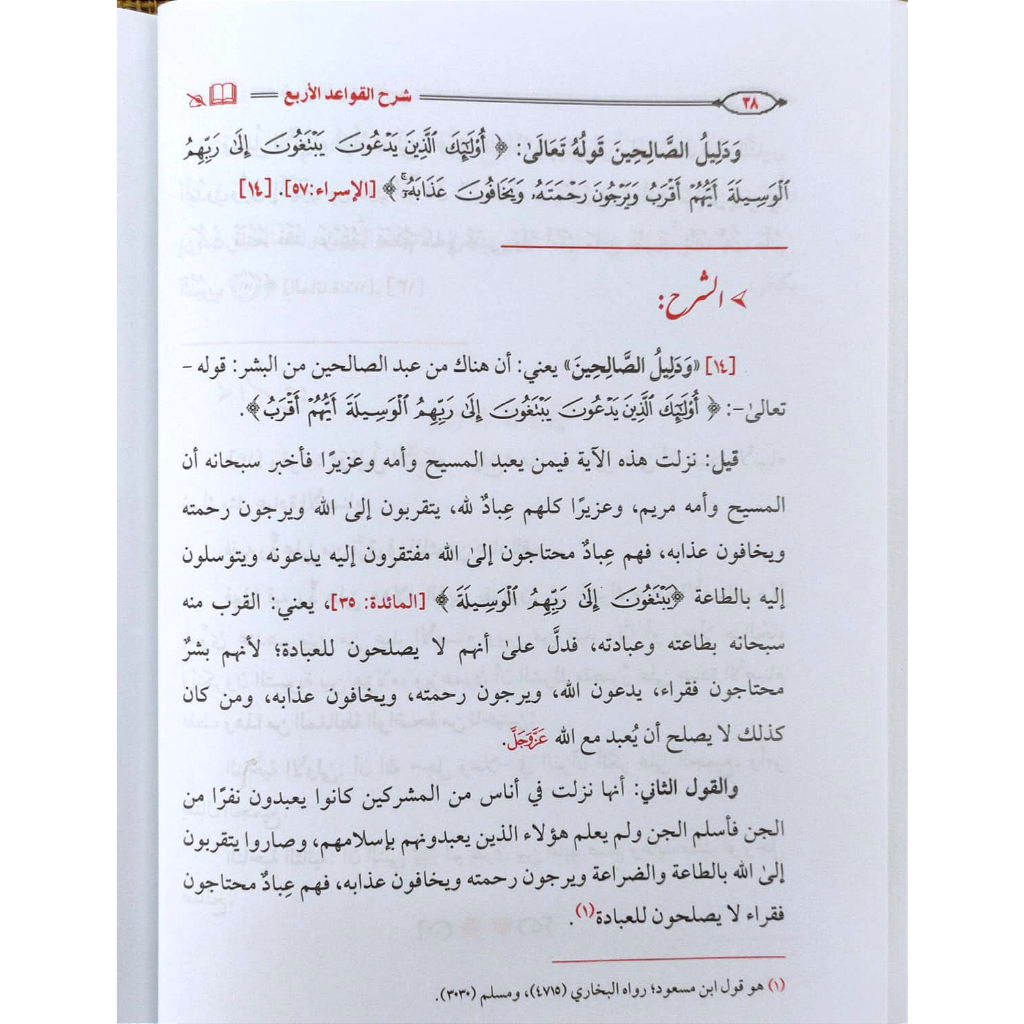 ٣٨ شرح القواعد الأربع
وَدَلِيلُ الصَّالِحِينَ قَولُهُ تَعَالَىٰ: ﴿ أُوْلَٰٓئِكَ ٱلَّذِينَ يَدْعُونَ يَبْتَغُونَ إِلَىٰ رَبِّهِمُ
ٱلْوَسِيلَةَ أَيُّهُمْ أَقْرَبُ وَيَرْجُونَ رَحْمَتَهُۥ وَيَخَافُونَ عَذَابَهُۥٓ ﴾ [الإسراء:٥٧]. [١٤]
الشرح:
[١٤] «وَدَلِيلُ الصَّالِحِينَ» يعني: أن هناك من عبد الصالحين من البشر: قوله –
تعالىٰ–: ﴿ أُوْلَٰٓئِكَ ٱلَّذِينَ يَدْعُونَ يَبْتَغُونَ إِلَىٰ رَبِّهِمُ ٱلْوَسِيلَةَ أَيُّهُمْ أَقْرَبُ ﴾.
قيل: نزلت هذه الآية فيمن يعبد المسيح وأمه وعزيرًا فأخبر سبحانه أن
المسيح وأمه مريم، وعزيرًا كلهم عِبادٌ لله، يتقربون إلىٰ الله ويرجون رحمته
ويخافون عذابه، فهم عِبادٌ محتاجون إلىٰ الله مفتقرون إليه يدعونه ويتوسلون
إليه بالطاعة ﴿يَبْتَغُونَ إِلَىٰ رَبِّهِمُ ٱلْوَسِيلَةَ ﴾ [المائدة: ٣٥]، يعني: القرب منه
سبحانه بطاعته وعبادته، فدلَّ علىٰ أنهم لا يصلحون للعبادة؛ لأنهم بشرٌ
محتاجون فقراء، يدعون الله، ويرجون رحمته، ويخافون عذابه، ومن كان
كذلك لا يصلح أن يُعبد مع الله عَزَّوَجَلَّ.
والقول الثاني: أنها نزلت في أناس من المشركين كانوا يعبدون نفرًا من
الجن فأسلم الجن ولم يعلم هؤلاء الذين يعبدونهم بإسلامهم، وصاروا يتقربون
إلىٰ الله بالطاعة والضراعة ويرجون رحمته ويخافون عذابه، فهم عِبادٌ محتاجون
فقراء لا يصلحون للعبادة(١).
(١) هو قول ابن مسعود؛ رواه البخاري (٤٧١٥)، ومسلم (٣٠٣٠).